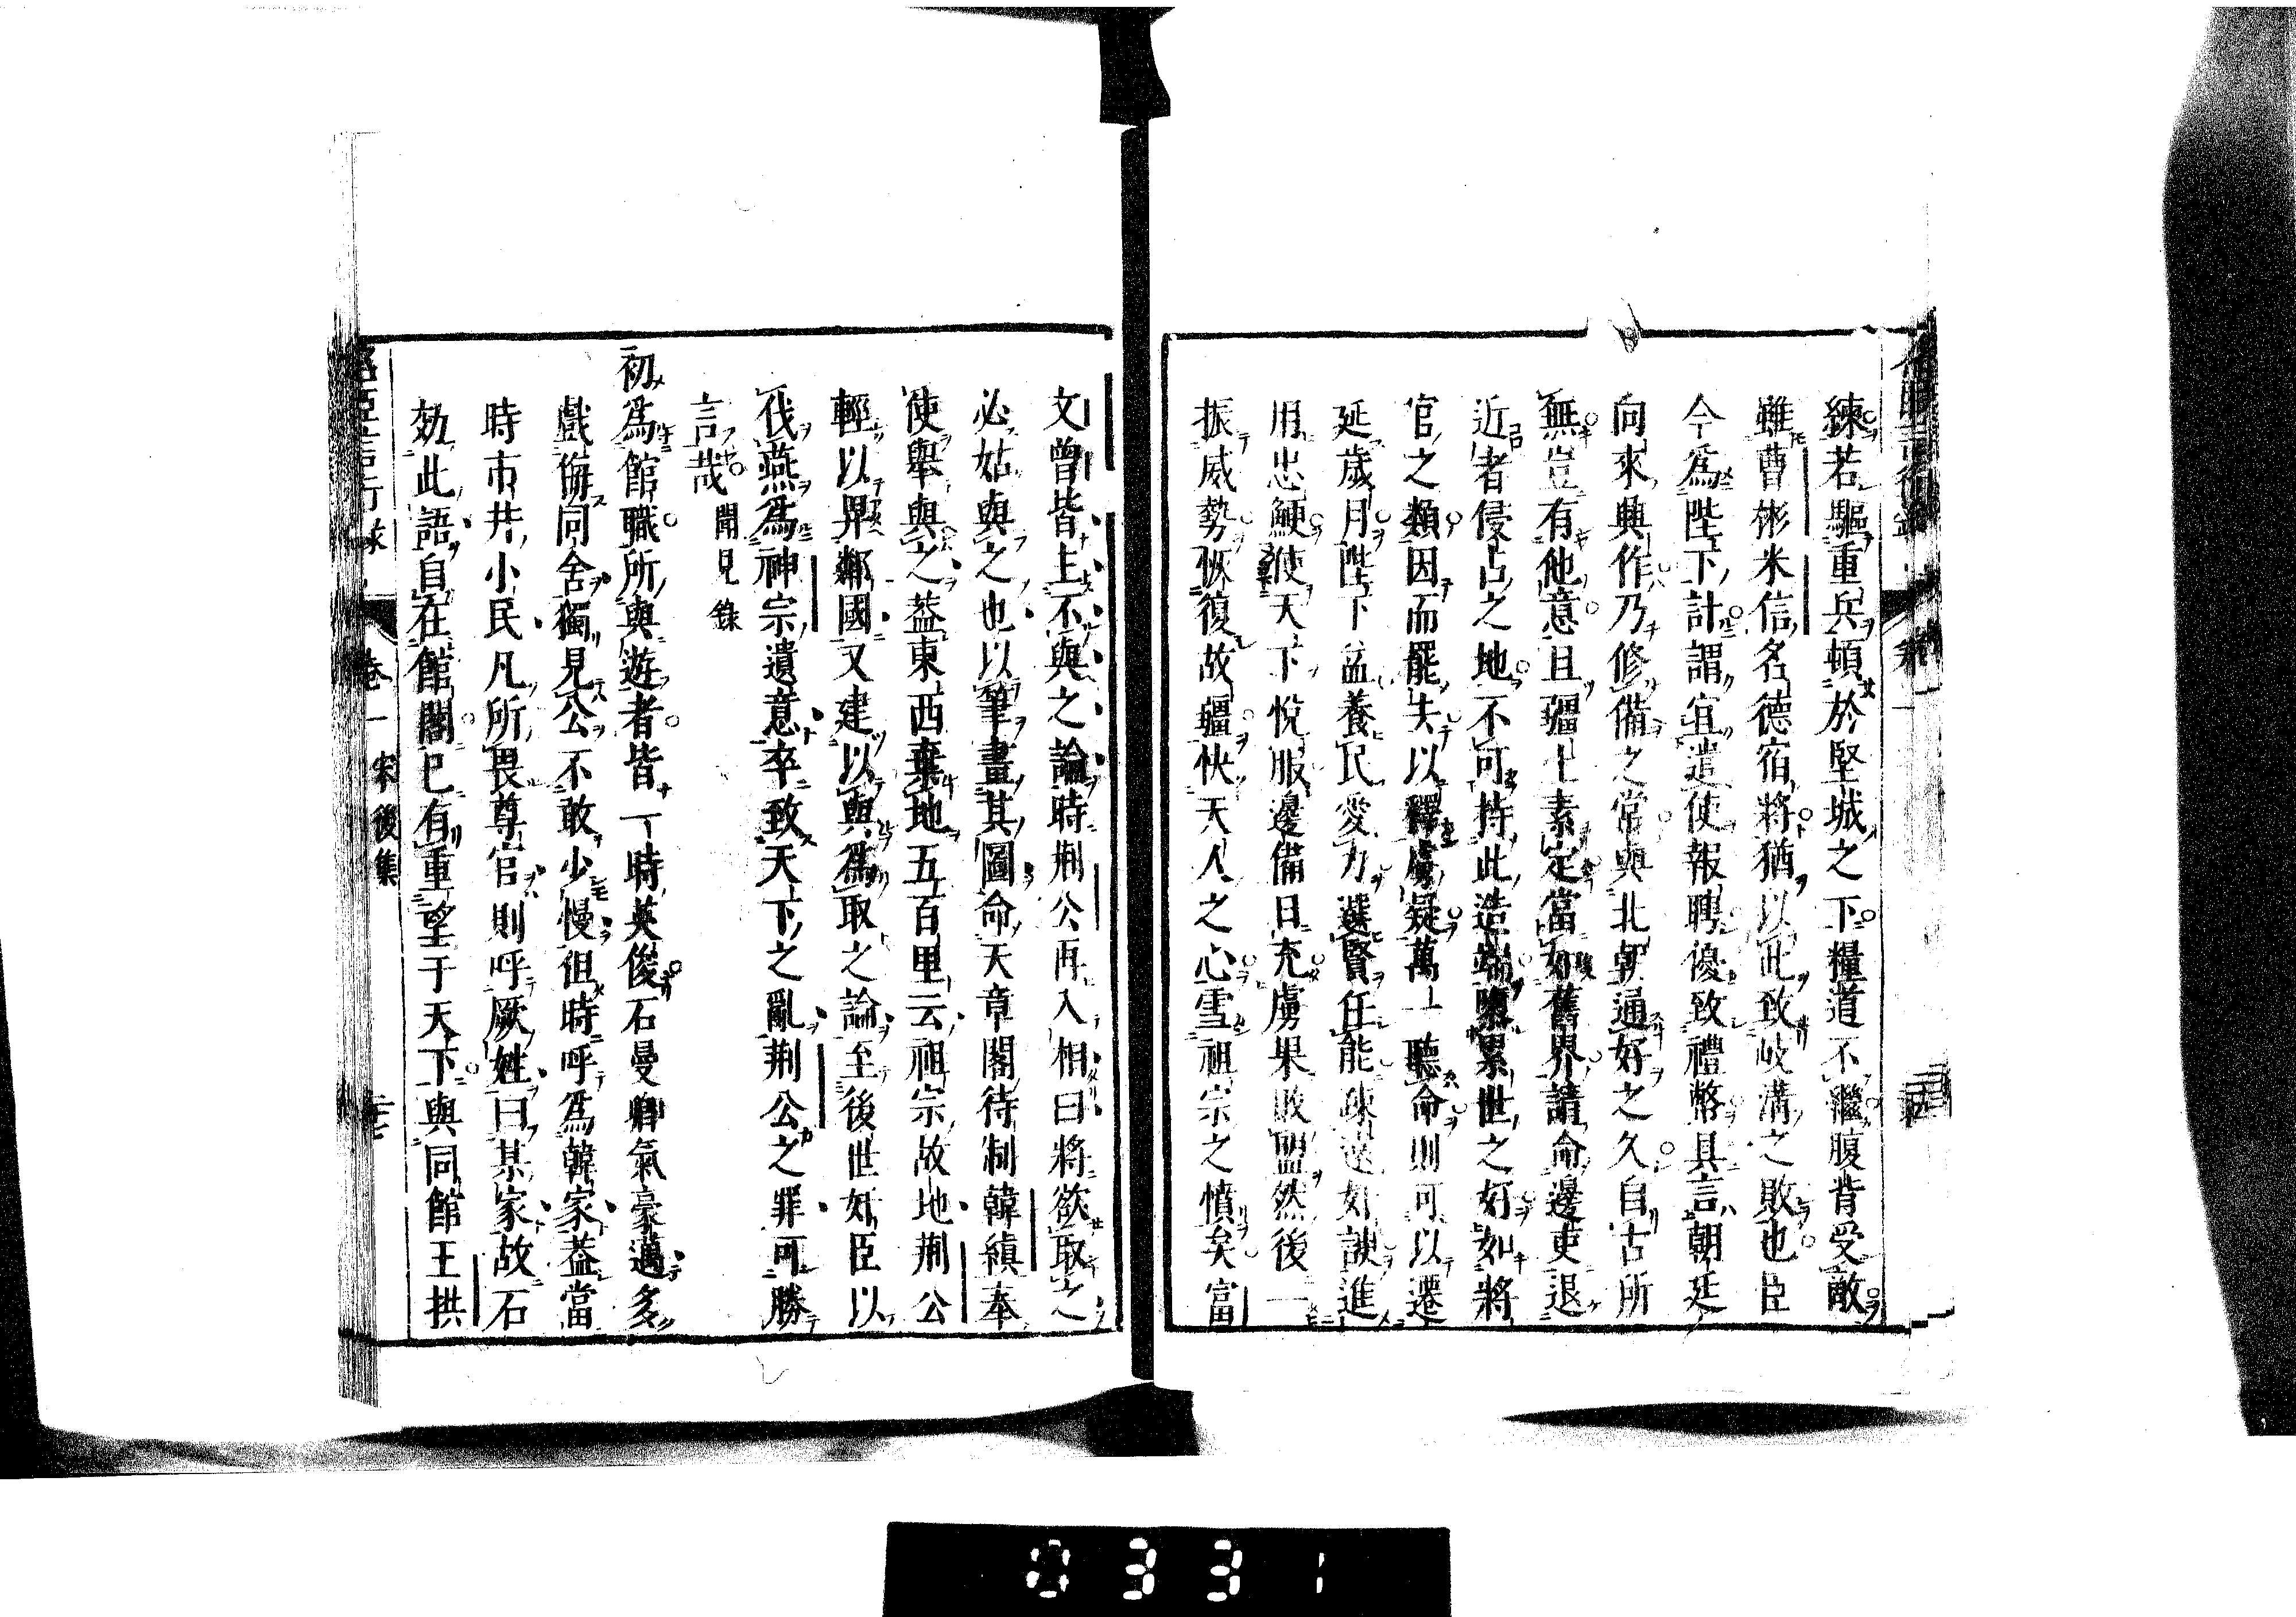 練若驅重兵頓於堅城之下糧道不繼腹背受敵
雖曹彬米信名德宿將猶以此致岐溝之敗也臣
今爲陛下計謂宜遣使報聘優致禮幣具言朝廷
向來興作乃修備之常與北朝通好之久自古所
無豈有他意且疆土素定當如舊界請命邊吏退
近者侵占之地不可持此造端隳累世之好如將
官之類因而罷失以釋虜疑萬一聽命則可以遷
延歲月陛下益養民愛力選賢任能疎遠奸諛進
用忠鯁使天下悅服邊備日充虜果敗盟然後一
振威勢恢復故疆快天人之心雪祖宗之憤矣富
文曾皆主不與之論時荆公再入相曰將欲取之
必姑與之也以筆畫其圖命天章閣待制韓縝奉
使舉與之葢東西棄地五百里云祖宗故地荆公
輕以畀鄰國又建以與爲取之論至後世奸臣以
伐燕爲神宗遺意卒致天下之亂荆公之罪可勝
言哉 聞見錄
初爲館職所與遊者皆一時英俊石曼卿氣豪邁多
戲侮同舍獨見公不敢少慢但時呼爲韓家葢當
時市井小民凡所畏尊官則呼厥姓曰某家故石
効此語自在館閣已有重望于天下與同館王拱
卷一 宋後集
0331